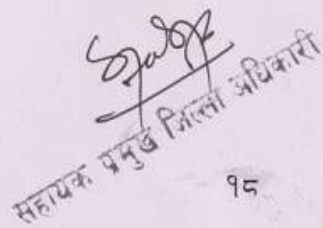 सहायक प्रमुख जिल्ला अधिकारी
१८